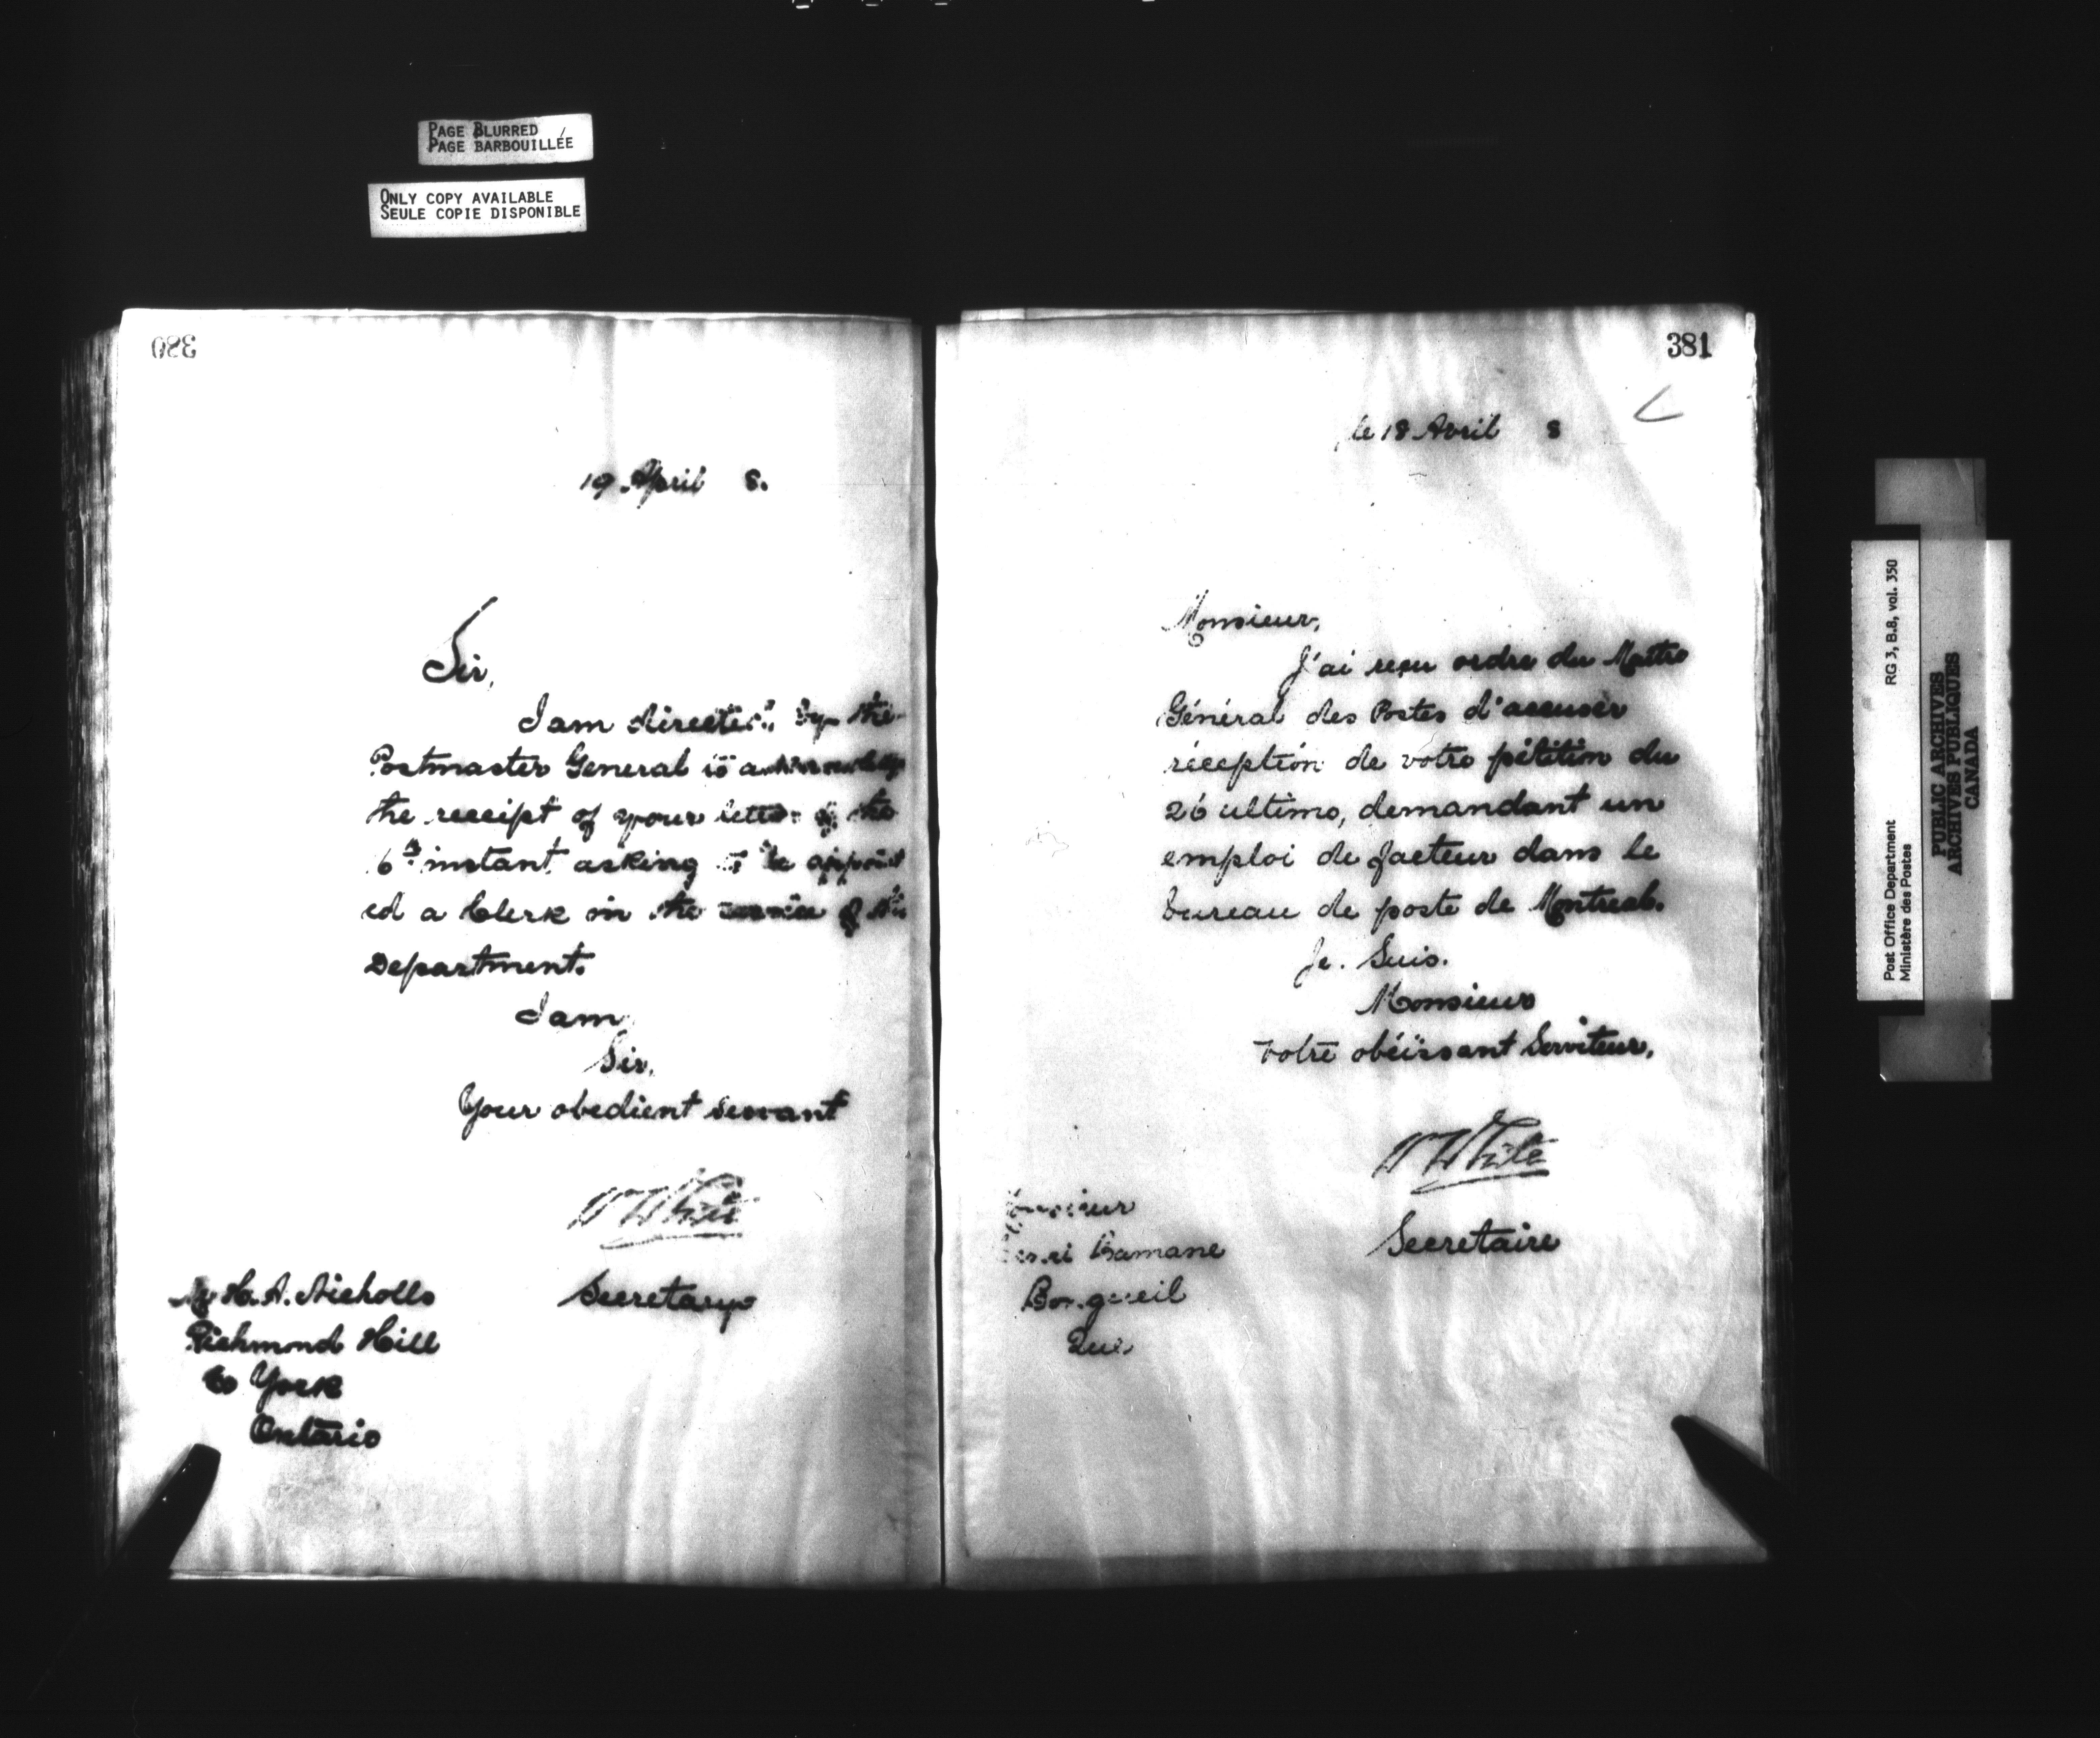 PAGE BLURRED
PAGE BARBOUILLÉE
ONLY COPY AVAILABLE
SEULE COPIE DISPONIBLE
380
19 April 8.
Sir,
I am directed by the
Postmaster General to acknowledge
the receipt of your letter of the
6th instant asking to be appoint
ed a Clerk in the service of this
Department.
I am
Sir,
Your obedient servant
W White
Secretary
Mr H. A. Nicholls
Richmond Hill
Co York
Ontario
381
le 18 Avril 8
Monsieur,
J'ai reçu ordre du Maitre
Général des Postes d'accuser
réception de votre pétition du
26 ultimo, demandant un
emploi de facteur dans le
bureau de poste de Montreal.
Je Suis.
Monsieur
votre obéissant Serviteur,
W White
Secretaire
Monsieur
Henri
Que
Post Office Department
Ministère des Postes
RG 3, B.8, vol. 350
PUBLIC ARCHIVES
ARCHIVES PUBLIQUES
CANADA